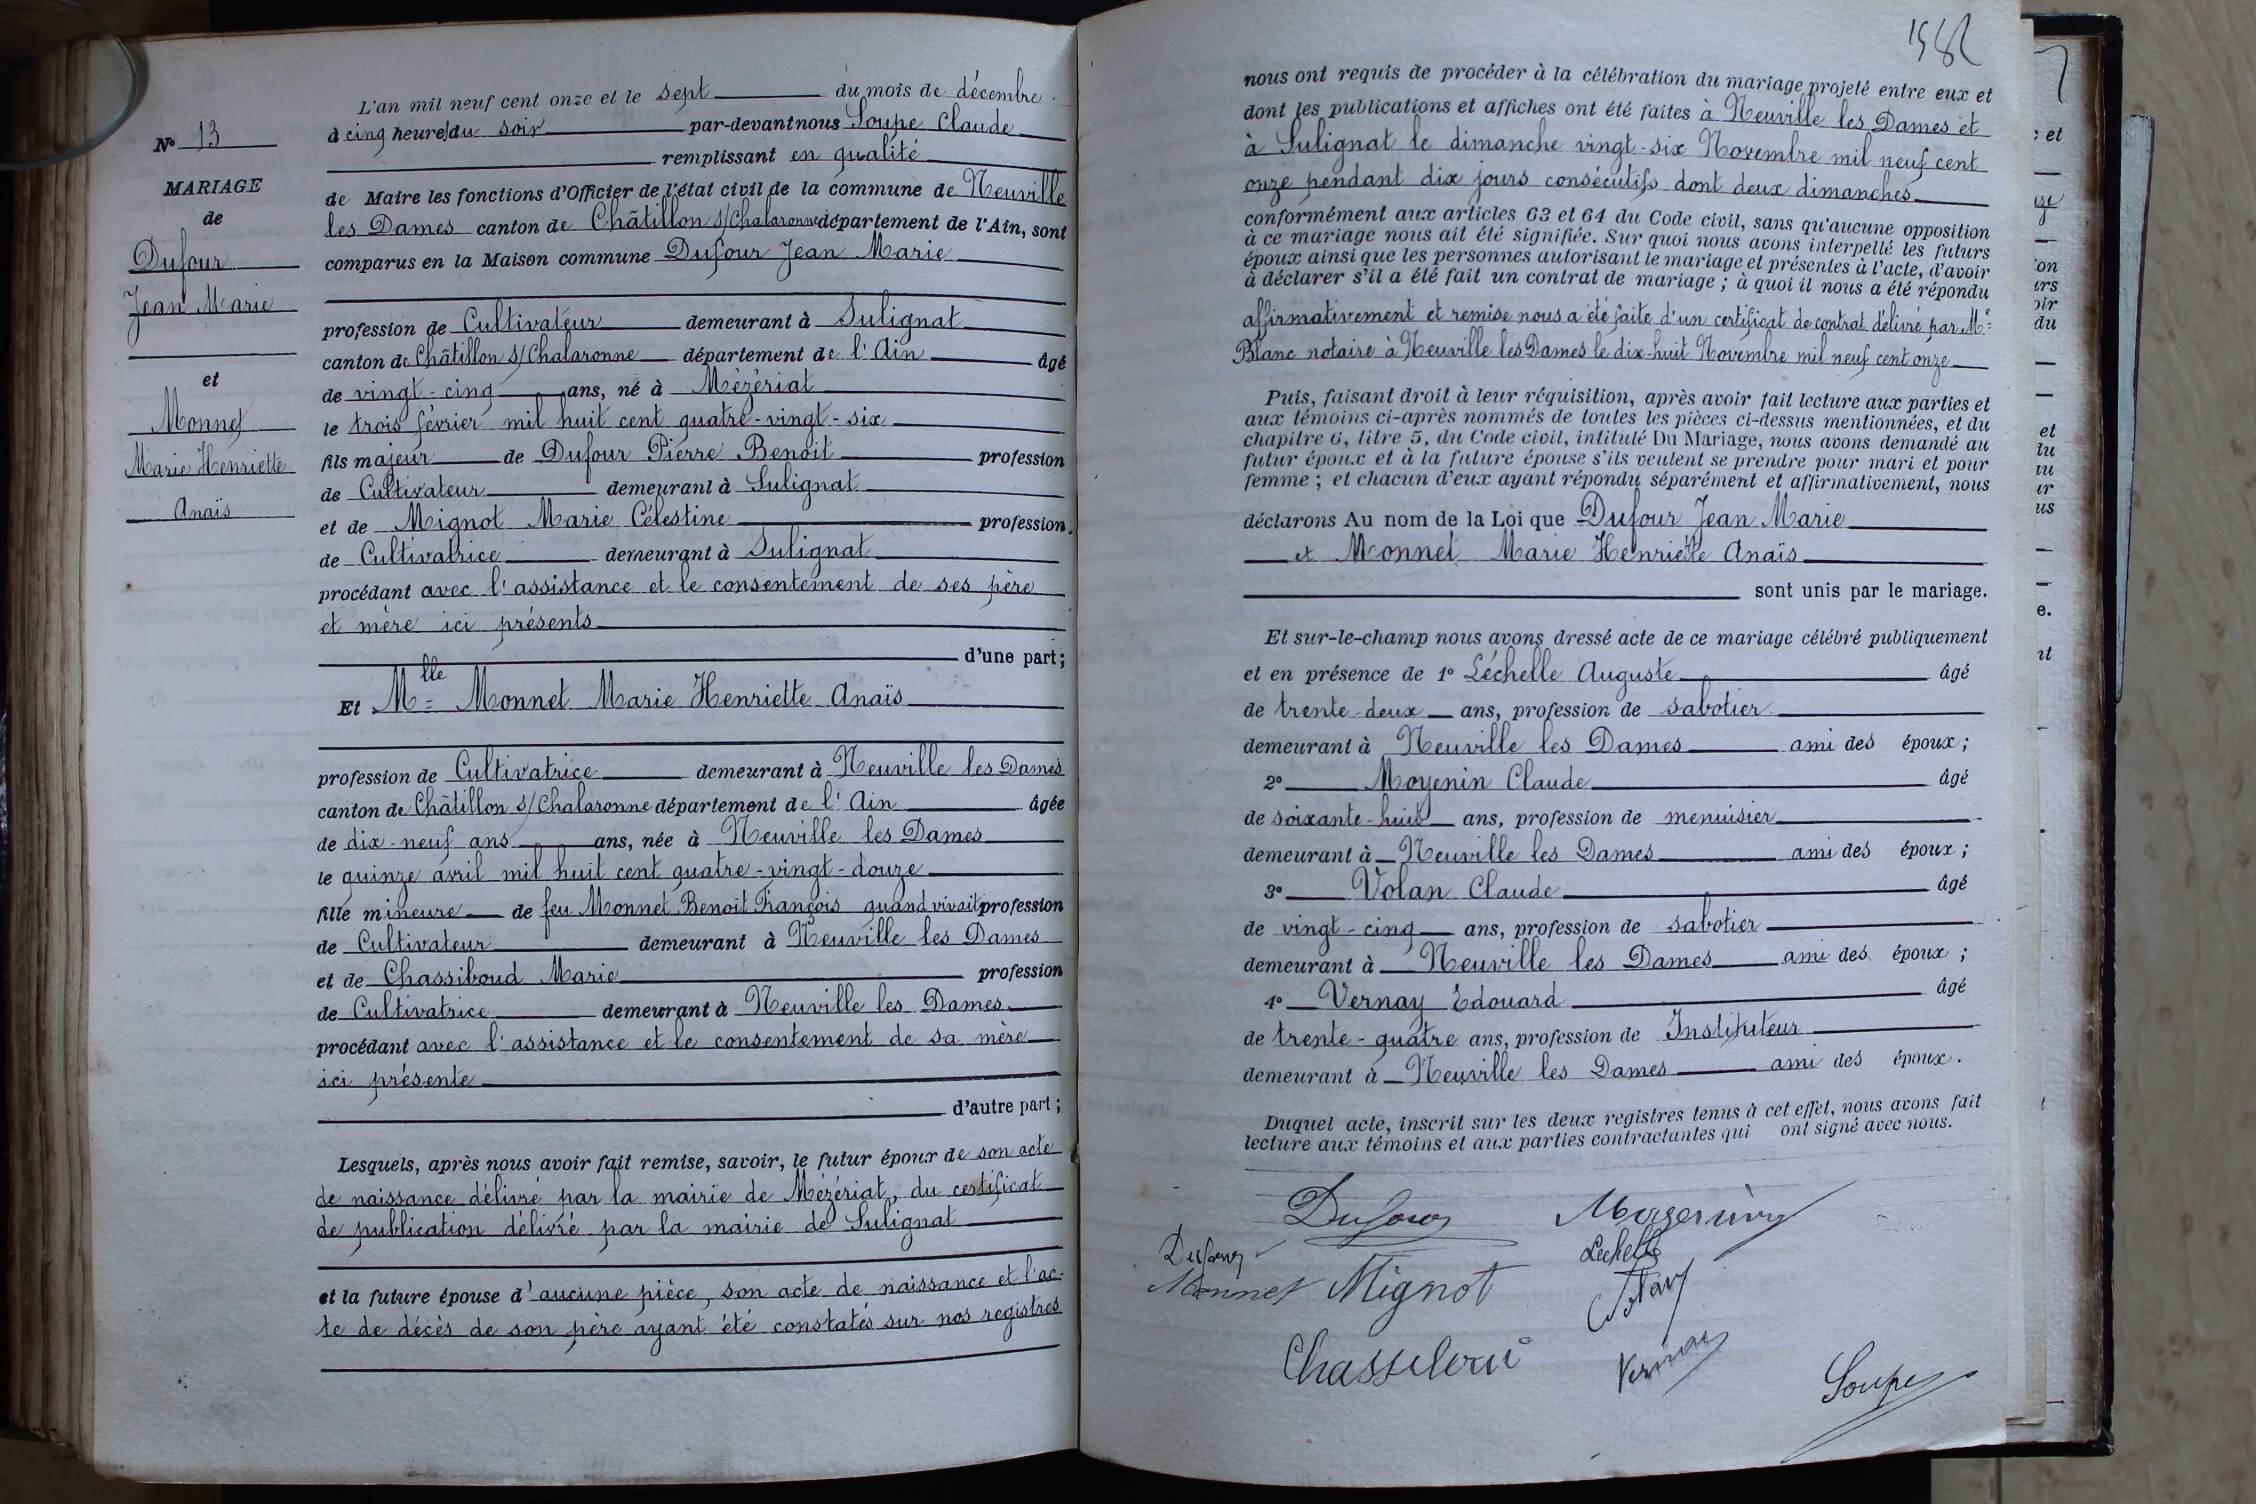 L'an mil neuf cent onze et le sept du mois de décembre
à cinq heures du soir par-devant nous Soupe Claude
remplissant en qualité
de Maire les fonctions d'Officier de l'état civil de la commune de Neuville
les Dames canton de Châtillon s/Chalaronne département de l'Ain, sont
comparus en la Maison commune Dufour Jean Marie
profession de Cultivateur demeurant à Sulignat
canton de Châtillon s/Chalaronne département de l'Ain âgé
de vingt-cinq ans, né à Mézériat
le trois février mil huit cent quatre-vingt-six
fils majeur de Dufour Pierre Benoit profession
de Cultivateur demeurant à Sulignat
et de Mignot Marie Célestine profession
de Cultivatrice demeurant à Sulignat
procédant avec l'assistance et le consentement de ses père
et mère ici présents
d'une part;
Et Mlle Monnet Marie Henriette Anaïs
profession de Cultivatrice demeurant à Neuville les Dames
canton de Châtillon s/Chalaronne département de l'Ain âgée
de dix-neuf ans ans, née à Neuville les Dames
le quinze avril mil huit cent quatre-vingt-douze
fille mineure de feu Monnet Benoit François quand vivait profession
de Cultivateur demeurant à Neuville les Dames
et de Chassiboud Marie profession
de Cultivatrice demeurant à Neuville les Dames
procédant avec l'assistance et le consentement de sa mère
ici présente
d'autre part;
Lesquels, après nous avoir fait remise, savoir, le futur époux de son acte
de naissance délivré par la mairie de Mézériat, du certificat
de publication délivré par la mairie de Sulignat
et la future épouse d'aucune pièce, son acte de naissance et l'ac-
te de décès de son père ayant été constatés sur nos registres
No 13
MARIAGE
de
Dufour
Jean Marie
et
Monnet
Marie Henriette
Anaïs
nous ont requis de procéder à la célébration du mariage projeté entre eux et
dont les publications et affiches ont été faites à Neuville les Dames et
à Sulignat le dimanche vingt-six Novembre mil neuf cent
onze pendant dix jours consécutifs dont deux dimanches
conformément aux articles 63 et 64 du Code civil, sans qu'aucune opposition
à ce mariage nous ait été signifiée. Sur quoi nous avons interpellé les futurs
époux ainsi que les personnes autorisant le mariage et présentes à l'acte, d'avoir
à déclarer s'il a été fait un contrat de mariage; à quoi il nous a été répondu
affirmativement et remise nous a été faite d'un certificat de contrat délivré par Me
Blanc notaire à Neuville les Dames le dix-huit Novembre mil neuf cent onze
Puis, faisant droit à leur réquisition, après avoir fait lecture aux parties et
aux témoins ci-après nommés de toutes les pièces ci-dessus mentionnées, et du
chapitre 6, titre 5, du Code civil, intitulé Du Mariage, nous avons demandé au
futur époux et à la future épouse s'ils veulent se prendre pour mari et pour
femme; et chacun d'eux ayant répondu séparément et affirmativement, nous
déclarons Au nom de la Loi que Dufour Jean Marie
et Monnet Marie Henriette Anaïs
sont unis par le mariage.
Et sur-le-champ nous avons dressé acte de ce mariage célébré publiquement
et en présence de 1o Léchelle Auguste âgé
de trente-deux ans, profession de sabotier
demeurant à Neuville les Dames ami des époux;
2o Moyenin Claude âgé
de soixante-huit ans, profession de menuisier
demeurant à Neuville les Dames ami des époux;
3o Volan Claude âgé
de vingt-cinq ans, profession de sabotier
demeurant à Neuville les Dames ami des époux;
4o Vernay Edouard âgé
de trente-quatre ans, profession de Instituteur
demeurant à Neuville les Dames ami des époux.
Duquel acte, inscrit sur les deux registres tenus à cet effet, nous avons fait
lecture aux témoins et aux parties contractantes qui ont signé avec nous.
Dufour
Dufour Lechelle
Monnet Mignot
Vernay
Soupe